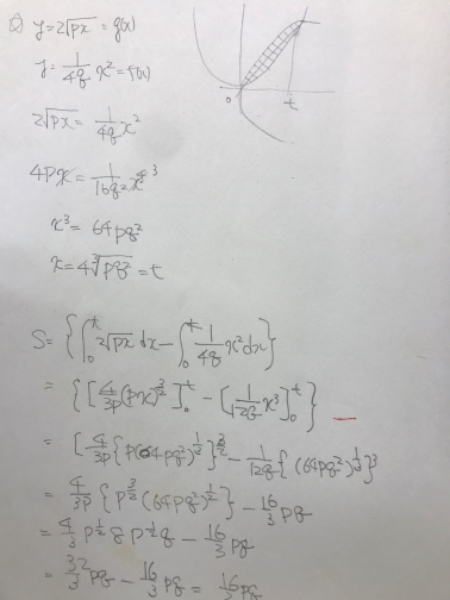 ② y=2√px = g(x)
y= 1/4q x² = f(x)
2√px = 1/4q x²
4px = 1/16q² x⁴ ³
x³ = 64pq²
x=4∛pq² = t
o t
S= {∫₀ᵗ 2√px dx − ∫₀ᵗ 1/4q x² dx}
= {[4/3p (px)^3/2]₀ᵗ − [1/12q x³]₀ᵗ}
= [4/3p {p(64pq²)^1/3}^3/2 − 1/12q {(64pq²)^1/3}³
= 4/3p {p^3/2 (64pq²)^1/2} − 16/3 pq
= 4/3 p^1/2 8 p^1/2 q − 16/3 pq
= 32/3 pq − 16/3 pq = 16/3 pq